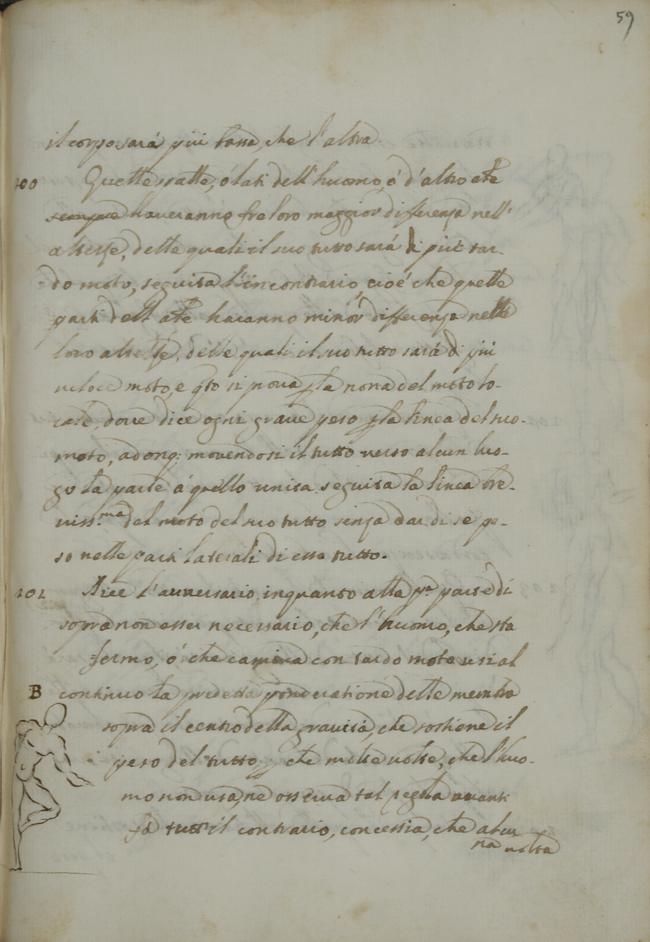 59
il corpo sará piú bassa, che l'altra.
200 Quelle spalle, ó lati dell'huomo, ó d'altro ale
sempre haveranno fra loro maggior differenza nell'
altezze, delle quali il suo tutto sará di piú tar-
do moto, seguita l'incontrario, cioé che quelle
parti dell'ale havanno minor differenza nelle
loro altezze, delle quali il suo tutto sará di piú
veloce moto, e qto si prova p la nona del moto lo-
cale, dove dice ogni grave pesa p la linea del suo
moto, adonq: movendosi il tutto verso alcun luo-
go la parte á quello unita seguita la linea bre-
viss.ma del moto del suo tutto senza dar di se pe-
so nelle parti laterali di esso tutto.
201 Dice l'avversario, inquanto alla pa parte di
sopra non esser necessario, che l'huomo, che sta
fermo, ó che camina con tardo moto usi al
B continuo la predetta ponderatione delle membra
sopra il centro della gravitá, che sostiene il
peso del tutto, p che molte volte, che l'huo-
mo non usa, ne osserva tal regola avanti
fá tutt'il contrario, concessia, che alcu
na volta